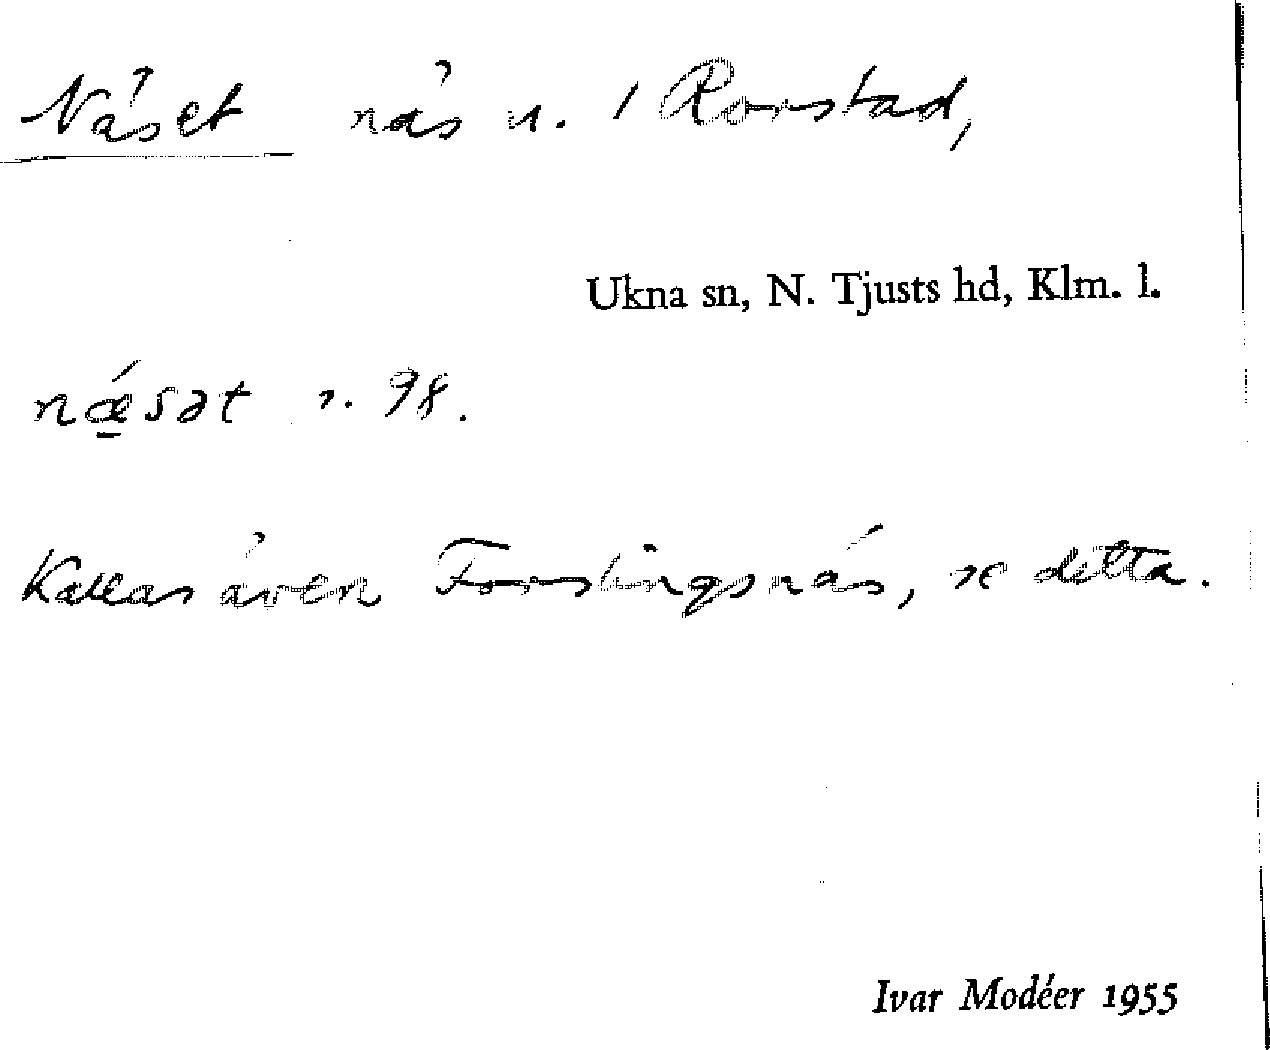 Näset näs u. / Ronstad,
Ukna sn, N. Tjusts hd, Klm. l.
nǽ̱sət r. 98.
Kallas även Forslingsnäs, se detta.
Ivar Modéer 1955